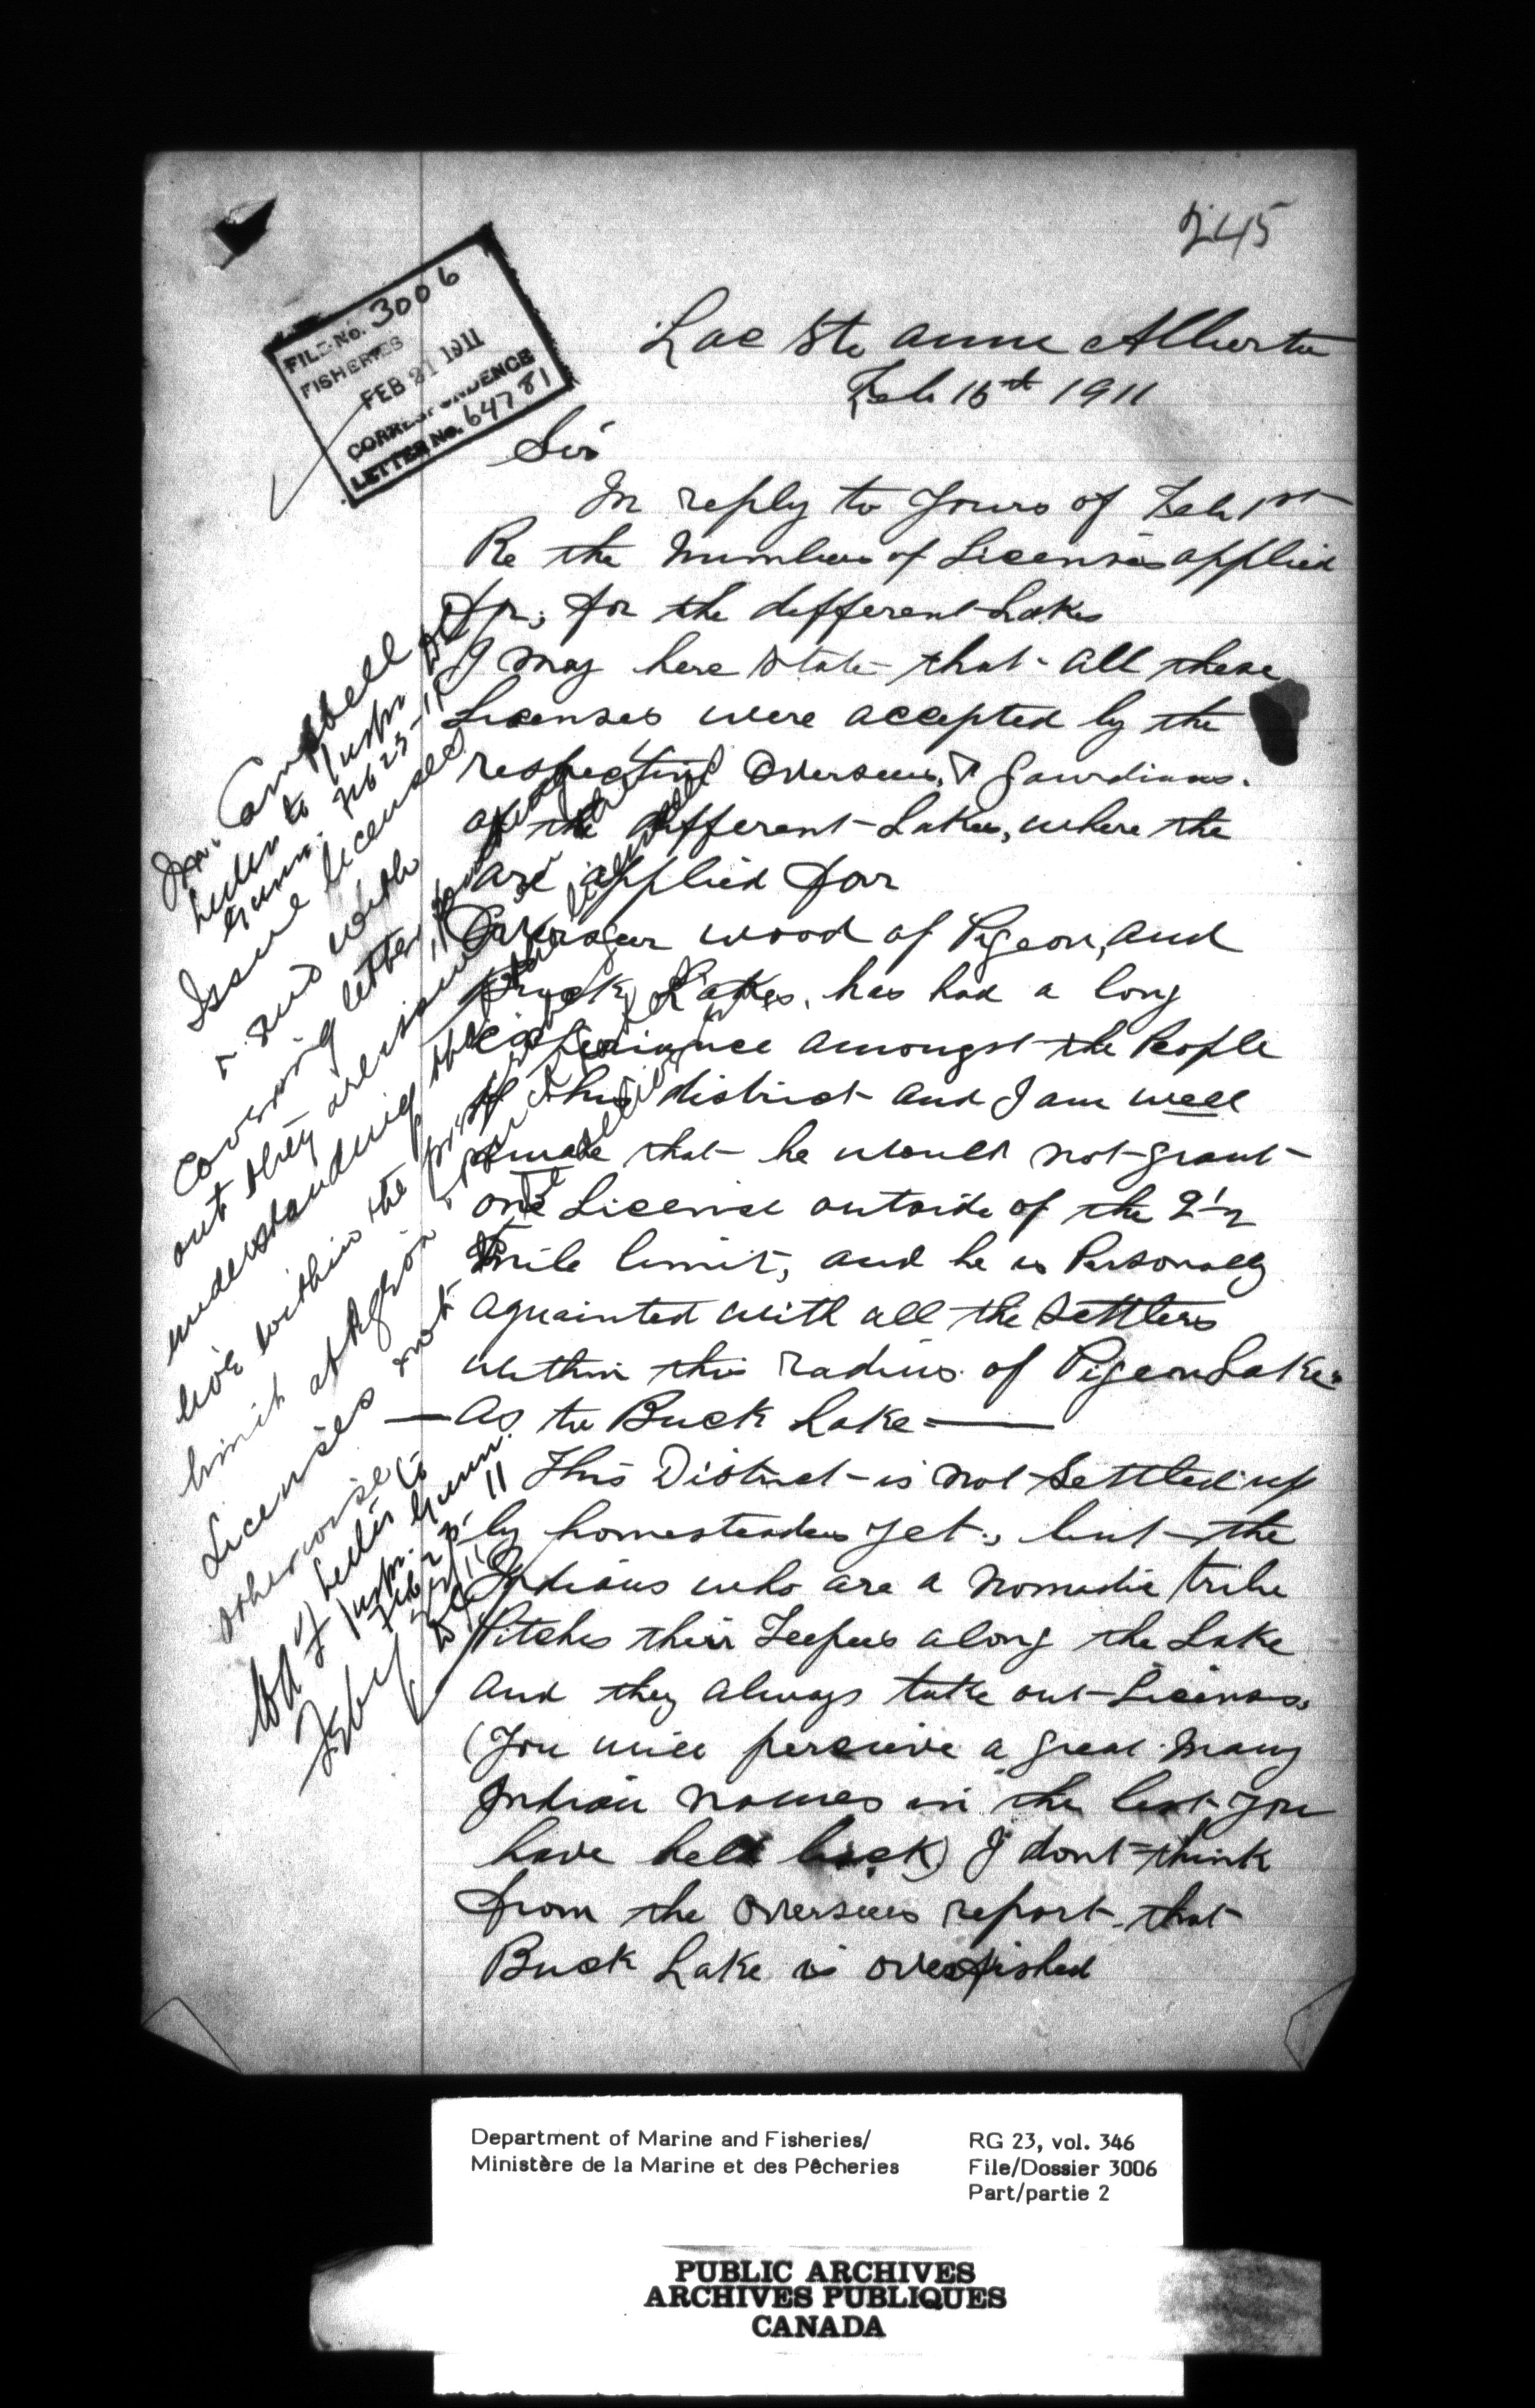 245
FILE No. 3006
FISHERIES
FEB 21 1911
CORRESPONDENCE
LETTER No. 64781
Lac Ste Anne Alberta
Feb 16th 1911
Sir
In reply to Yours of Feb 1st
Re the Number of Licenses applied
for, for the defferent Lakes
I may here state that all these
Licenses were accepted by the
respective Overseers, & Gaurdians.
of the different Lakes, where the
are applied for
Overseer Wood of Pigeon, and
Buck Lakes, has had a long
experiance amongst the People
of this district and I am well
aware that he would not grant
one License outside of the 2½
mile limit, and he is Personally
aquainted with all the Settlers
within this radius of Pigeon Lake.
— As to Buck Lake —
This District is not Settled up
by homesteaders yet, but the
Indians who are a Nomadic tribe
Pitches their Teepees along the Lake
and they always take out Licenses.
(You will percieve a great many
Indian names in the list you
have held back) I dont think
from the Overseers report that
Buck Lake is overfished
Mr. Campbell
Letter to Insptr
Gunn. Feb 23-11
Issue licenses
& send with
covering letter
out they are issued
understanding the
live within the
limit at Pigeon
Licenses not
otherwise to
Copy of letter to
Insptr. Gunn.
Feb 23-11
Department of Marine and Fisheries/
Ministère de la Marine et des Pêcheries
RG 23, vol. 346
File/Dossier 3006
Part/partie 2
PUBLIC ARCHIVES
ARCHIVES PUBLIQUES
CANADA